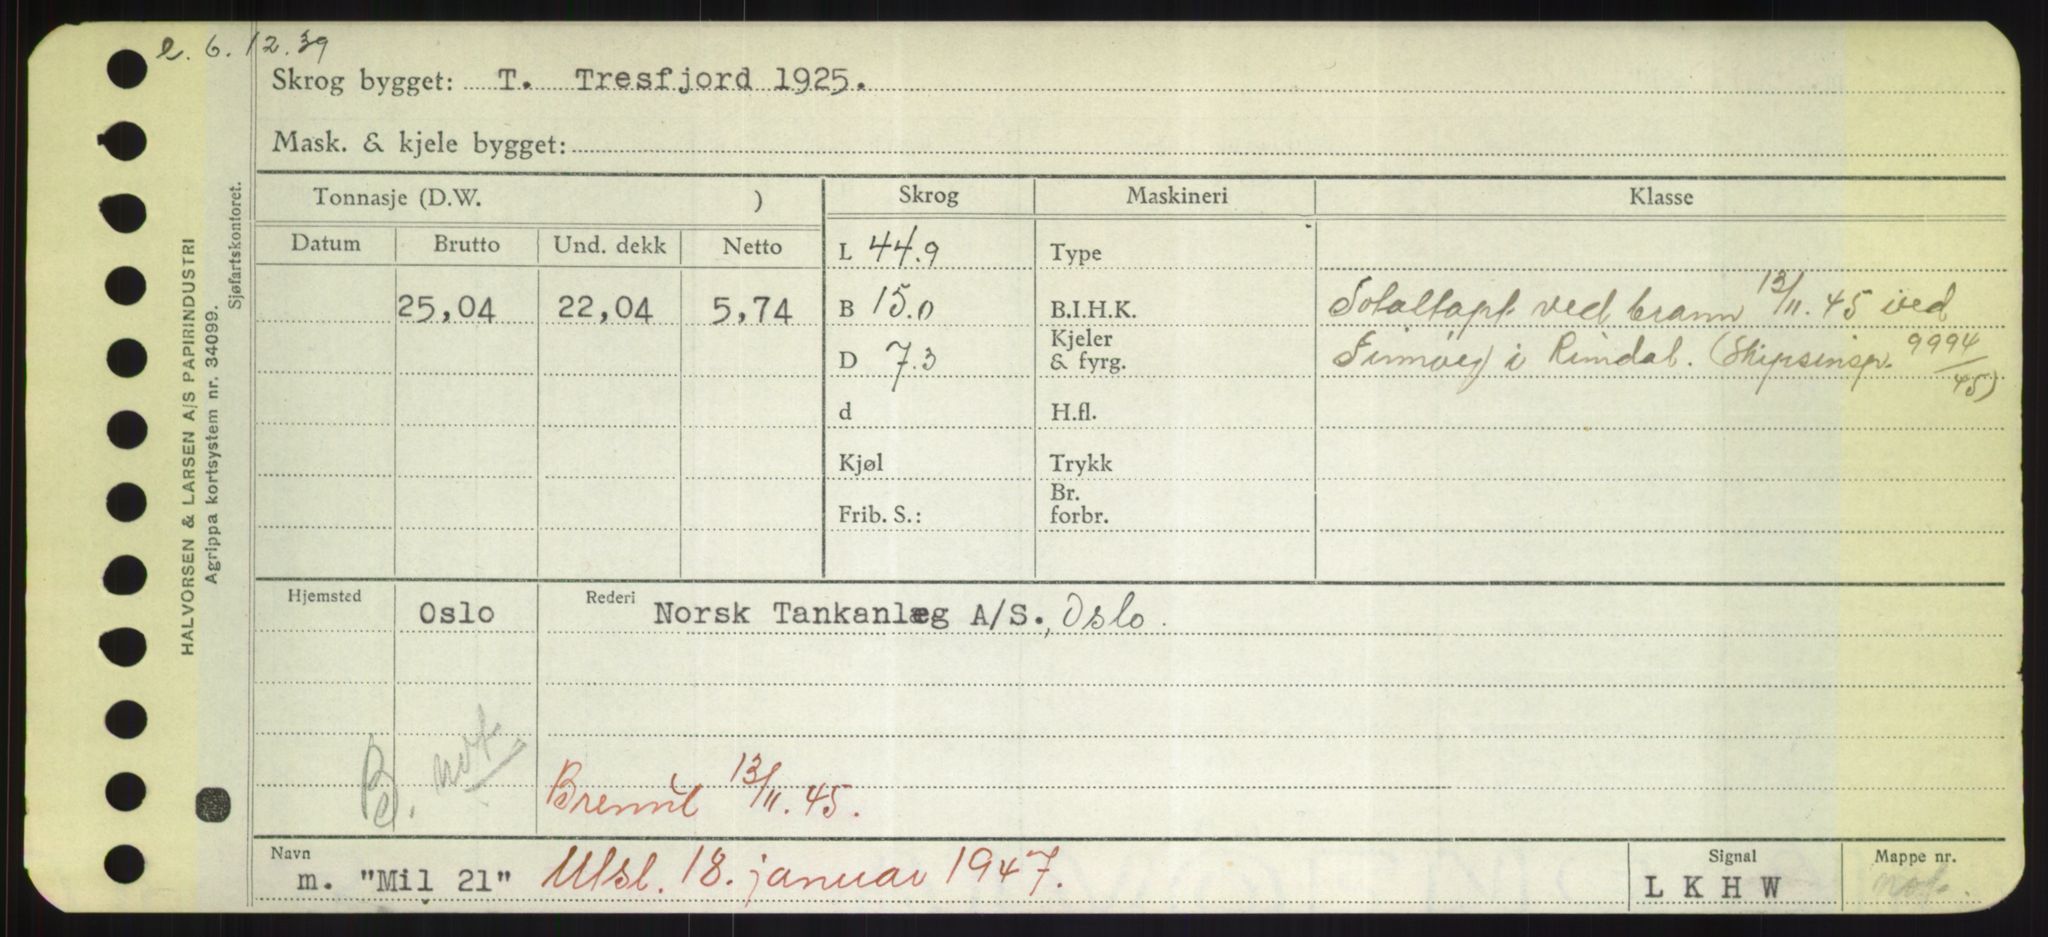 e. 6.12.39
Skrog bygget: T. Tresfjord 1925.
Mask. & kjele bygget:
HALVORSEN & LARSEN A/S PAPIRINDUSTRI
Agrippa kortsystem nr. 34099.
Sjøfartskontoret.
Tonnasje (D.W. ) Skrog Maskineri Klasse
Datum Brutto Und. dekk Netto L 44.9 Type
25,04 22,04 5,74 B 15.0 B.I.H.K. Totaltapt ved brann 13/11.45 ved
D 7.3 Kjeler & fyrg. i Rindal. (Skipsinsp. 9994/45)
d H.fl.
Kjøl Trykk
Frib. S.: Br. forbr.
Hjemsted Oslo Rederi Norsk Tankanlæg A/S., Oslo.
not
Brennt 13/11.45.
Navn m. "Mil 21" Utsl. 18. januar 1947. Signal L K H W Mappe nr. not.